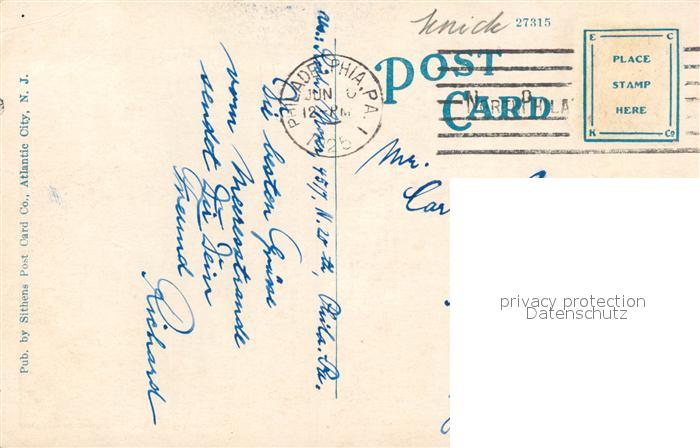 Knick 27315
POST
CARD
E C
PLACE
STAMP
HERE
K Co
PHILADELPHIA, PA. 1
JUN
12 PM
1925
Mr.
Car
privacy protection
Datenschutz
4517. N. 20 th, Phila. Pa.
Die besten Grüsse
vom Meeresstrande
sendet Dir Dein
Freund
Richard
Pub. by Sithens Post Card Co., Atlantic City, N. J.